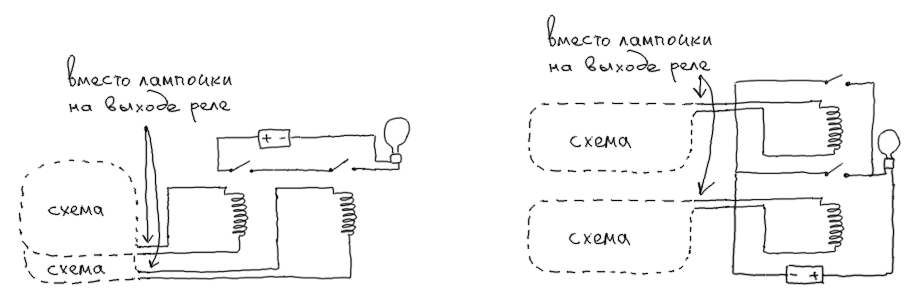 вместо лампочки
на выходе реле
+ -
схема
схема
вместо лампочки
на выходе реле
схема
схема
- +